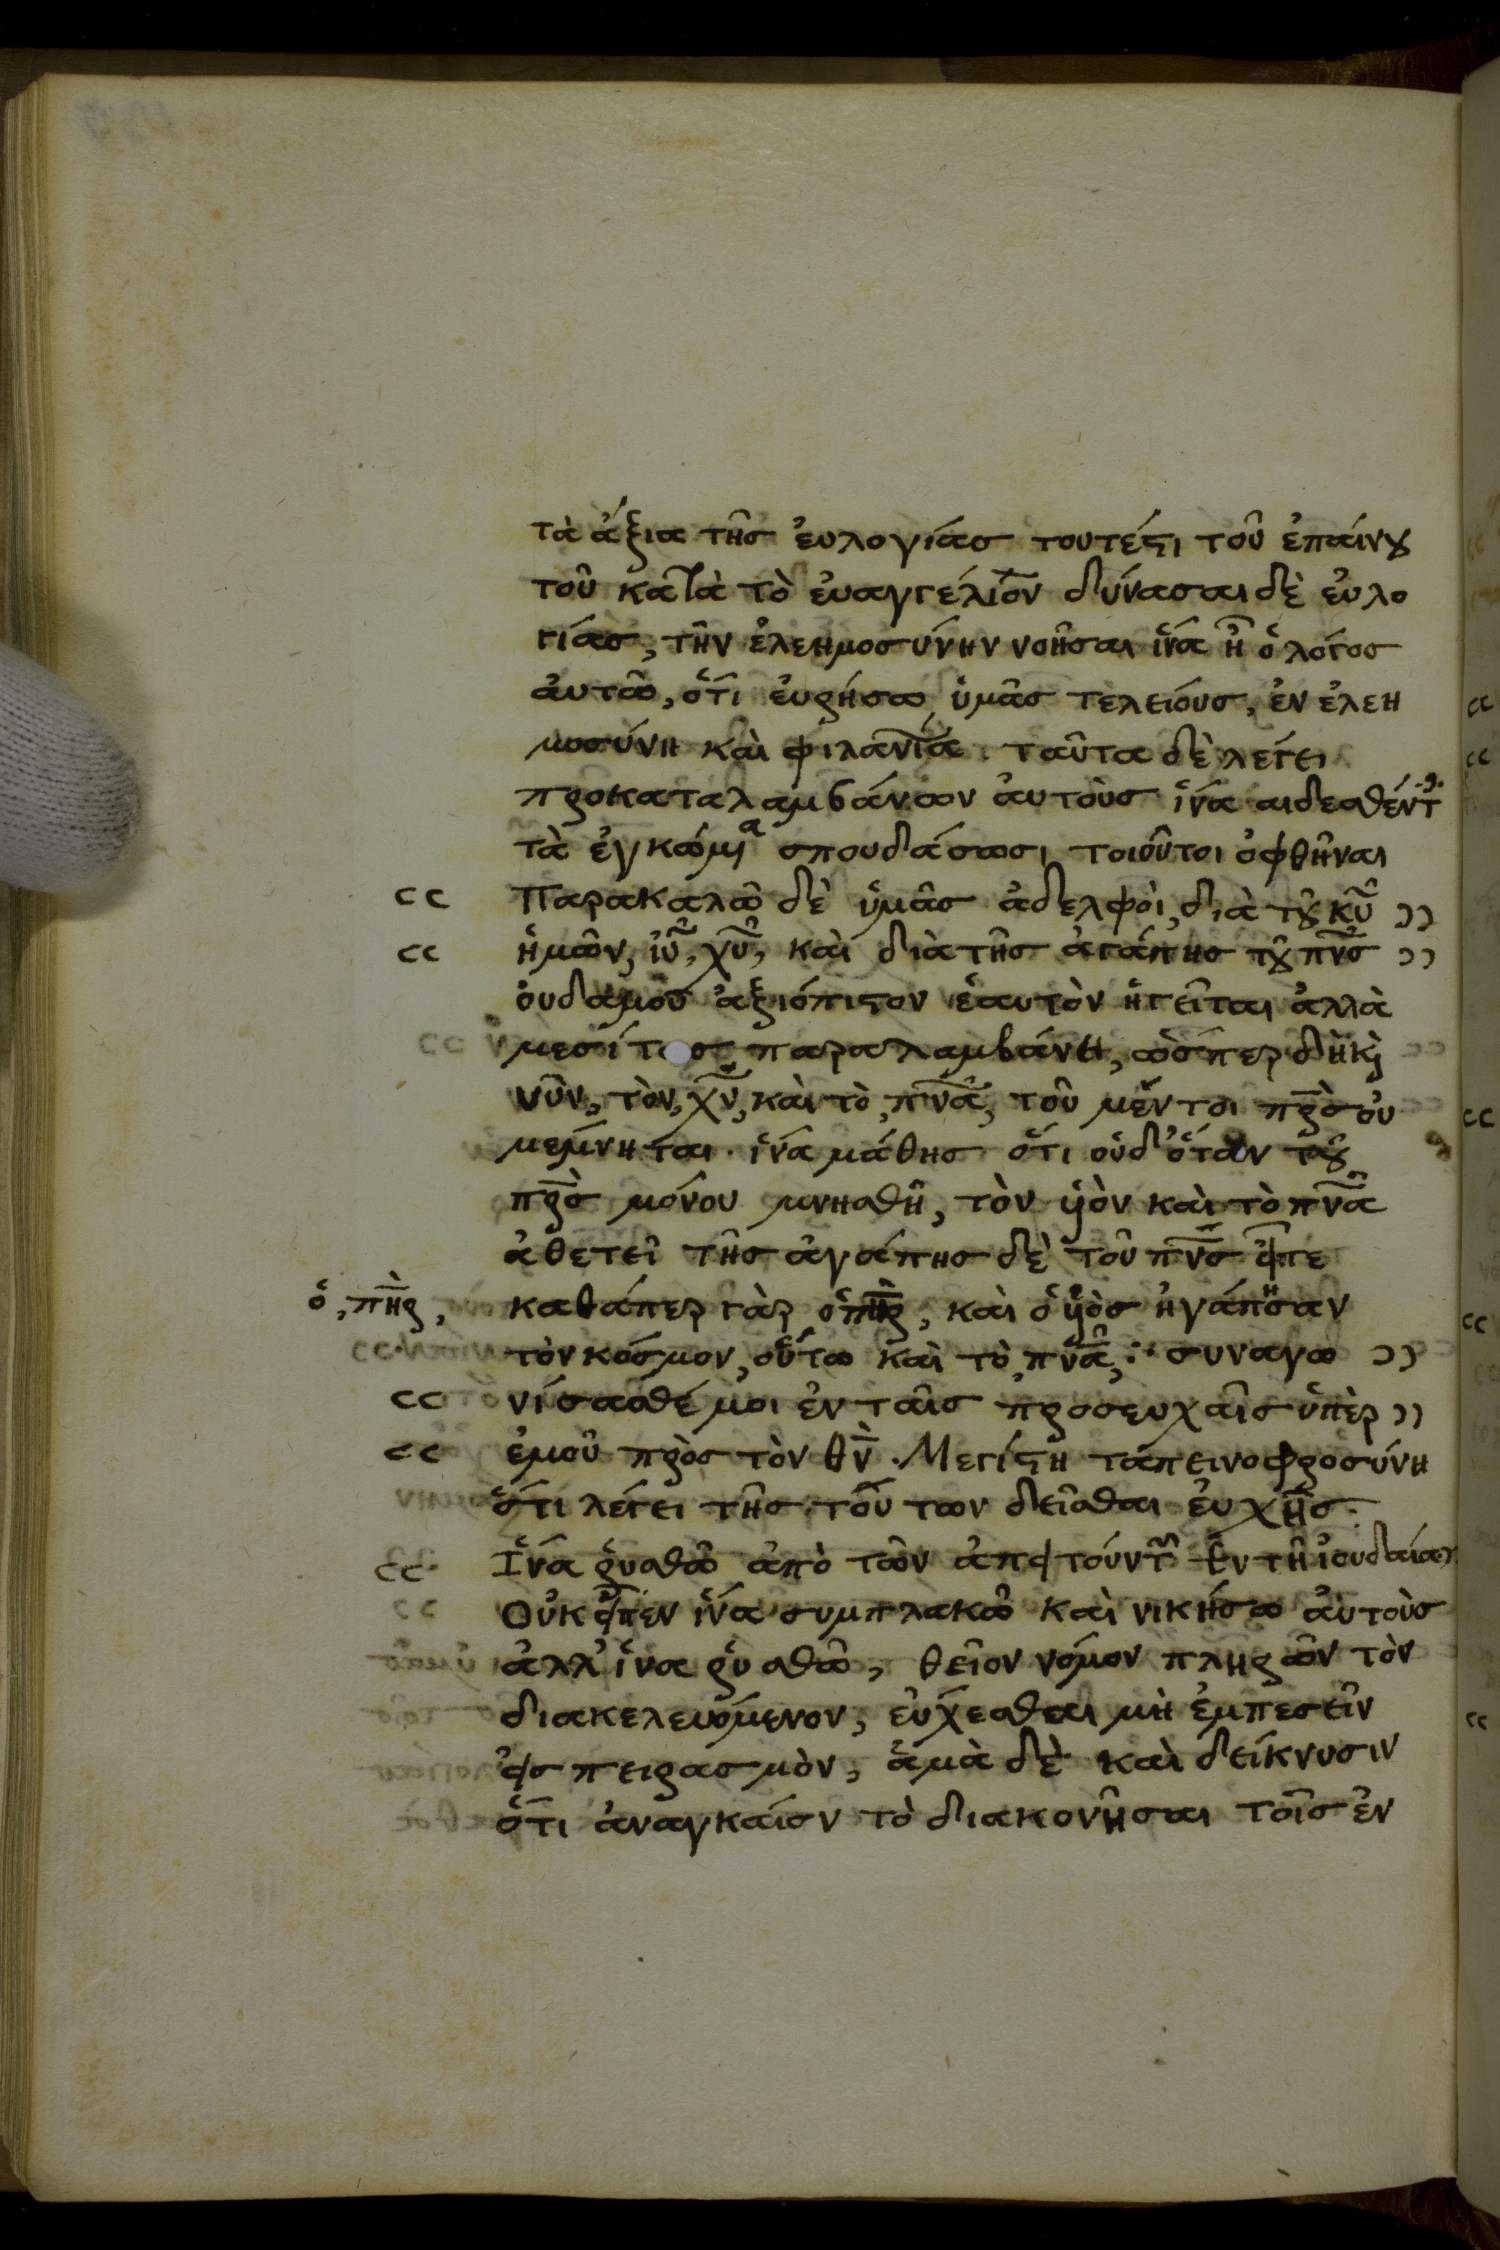 τὰ ἄξια τῆς ἐυλογίας τουτέϛι τοῦ ἐπαίνȣ
τοῦ κατὰ τὸ ἐυαγγέλιον δύνασαι δὲ ἐυλο
γίας, τὴν ἐλεημοσύνην νοῆσαι ἵνα ᾖ ὁ λόγος
ἀυτῶ, ὅτι ἑυρήσω ὑμᾶς τελείους, ἐν ἐλεη
μοσύνη καὶ φιλανία. ταῦτα δὲ λέγει
προκαταλαμβάνων ἀυτοὺς ἵνα αιδεσθέντ
τὰ ἐγκώμια σπουδάσωσι τοιοῦτοι ὀφθῆναι
cc Παρακαλῶ δὲ ὑμᾶς ἀδελφοὶ, διὰ τȣ͂ κῦ ))
cc ἡμῶν, ἰῦ, χῦ, καὶ διὰ τῆς ἀγάπης τȣ͂ πνς ))
ὀυδαμοῦ ἀξιόπιϛον ἑαυτὸν ἡγεῖται ἀλλὰ
μεσίτας παραλαμβάνει, ὥσπερ δὴ κὶ
νῦν, τὸν, χν, καὶ τὸ, πνα, τοῦ μέντοι πρς ὀυ
μέμνηται. ἵνα μάθης ὅτι οὐδ' ὅταν τȣ͂
πρς μόνου μνησθῆ, τὸν ὑιὸν καὶ τὸ πνα
ἀθετεῖ τῆς ἀγάπης δὲ τοῦ πνς εἶπε
ὁ, πηρ, καθάπερ γὰρ ὁ πηρ, καὶ ὁ ὑιὸς ἠγάπησαν
τὸν κόσμον, οὕτω καὶ τὸ, πνα, ∴ συναγω ))
cc νίσασθέ μοι ἐν ταῖς προσευχαῖς ὑπὲρ ))
cc ἐμοῦ πρὸς τὸν θν. Μεγίϛη ταπεινοφροσύνη
ὅτι λέγει τῆς τούτων δεῖσθαι ἐυχῆς.
cc Ἵνα ῥυσθῶ ἀπὸ τῶν ἀπειθούντ ἐν τῆ ἰουδαία ))
Οὐκ εἶπεν ἵνα συμπλακῶ καὶ νικήσω ἀυτοὺς
ἀλλ' ἵνα ῥυσθῶ, θεῖον νόμον πληρῶν τὸν
διακελευόμενον, ἐύχεσθαι μὴ ἐμπεσεῖν
εἰς πειρασμὸν, ἅμα δὲ καὶ δείκνυσιν
ὅτι ἀναγκαῖον τὸ διακονῆσαι τοῖς ἐν